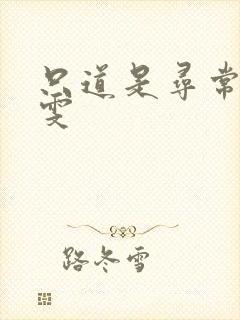 只道是尋常
雯
路冬雪